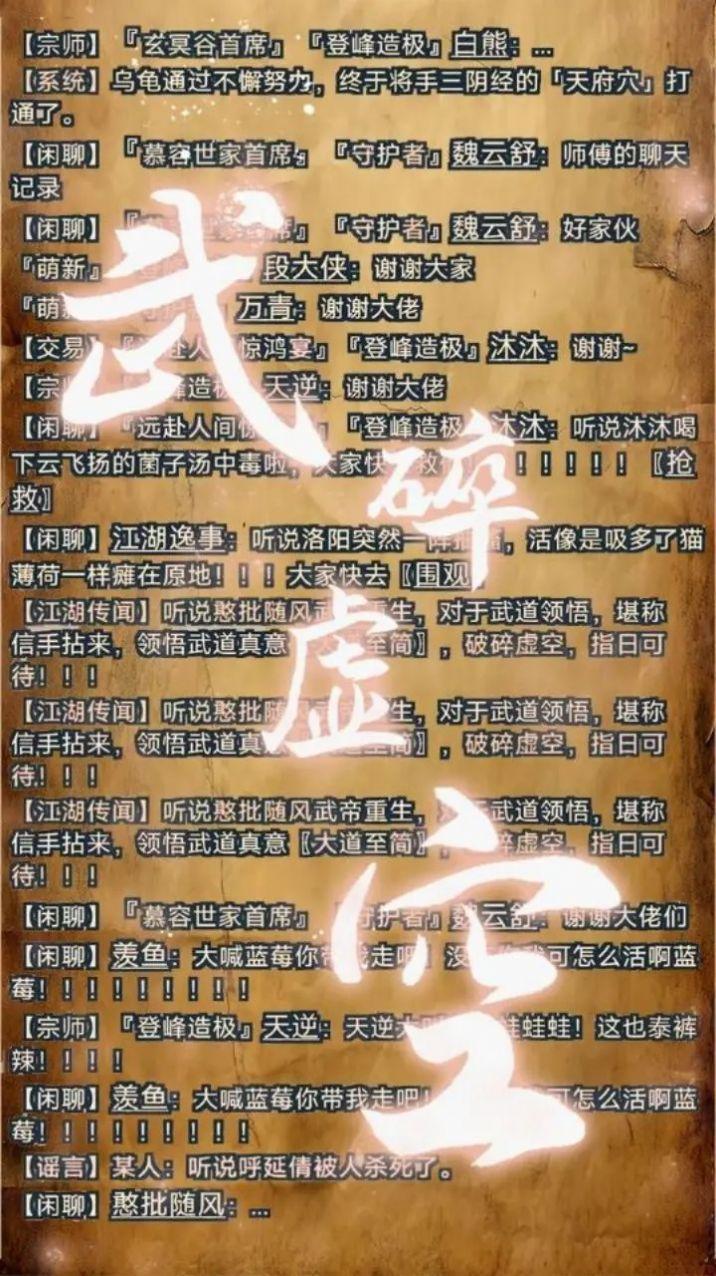 【宗师】『玄冥谷首席』『登峰造极』白熊：...
【系统】乌龟通过不懈努力，终于将手三阴经的「天府穴」打
通了。
【闲聊】『慕容世家首席』『守护者』魏云舒：师傅的聊天
记录
【闲聊】『世家首席』『守护者』魏云舒：好家伙
『萌新』段大侠：谢谢大家
『萌 万青：谢谢大佬
【交易】赴人 惊鸿宴』『登峰造极』沐沐：谢谢~
【宗 峰造极 天逆：谢谢大佬
【闲 『远赴人间惊 』『登峰造极 沐沐：听说沐沐喝
下云飞扬的菌子汤中毒啦，大家快 救 ！！！！！！〖抢
救〗
【闲聊】江湖逸事：听说洛阳突然一阵 ，活像是吸多了猫
薄荷一样瘫在原地！！！大家快去〖围观
【江湖传闻】听说憨批随风武 重生，对于武道领悟，堪称
信手拈来，领悟武道真意 至简〗，破碎虚空，指日可
待！！！
【江湖传闻】听说憨批随 生，对于武道领悟，堪称
信手拈来，领悟武道真意 至简〗，破碎虚空，指日可
待！！！
【江湖传闻】听说憨批随风武帝重生，对于武道领悟，堪称
信手拈来，领悟武道真意〖大道至简〗， 碎虚空，指日可
待！！！
【闲聊】『慕容世家首席』 守护者』魏云舒：谢谢大佬们
【闲聊】羡鱼：大喊蓝莓你带我走吧！没 可怎么活啊蓝
莓！！！！！！！！！
【宗师】『登峰造极』天逆：天逆大 蛙蛙蛙！这也泰裤
辣！！！！
【闲聊】羡鱼：大喊蓝莓你带我走吧！ 可怎么活啊蓝
莓！！！！！！！！！
【谣言】某人：听说呼延倩被人杀死了。
【闲聊】憨批随风：...
武
碎
虚
空